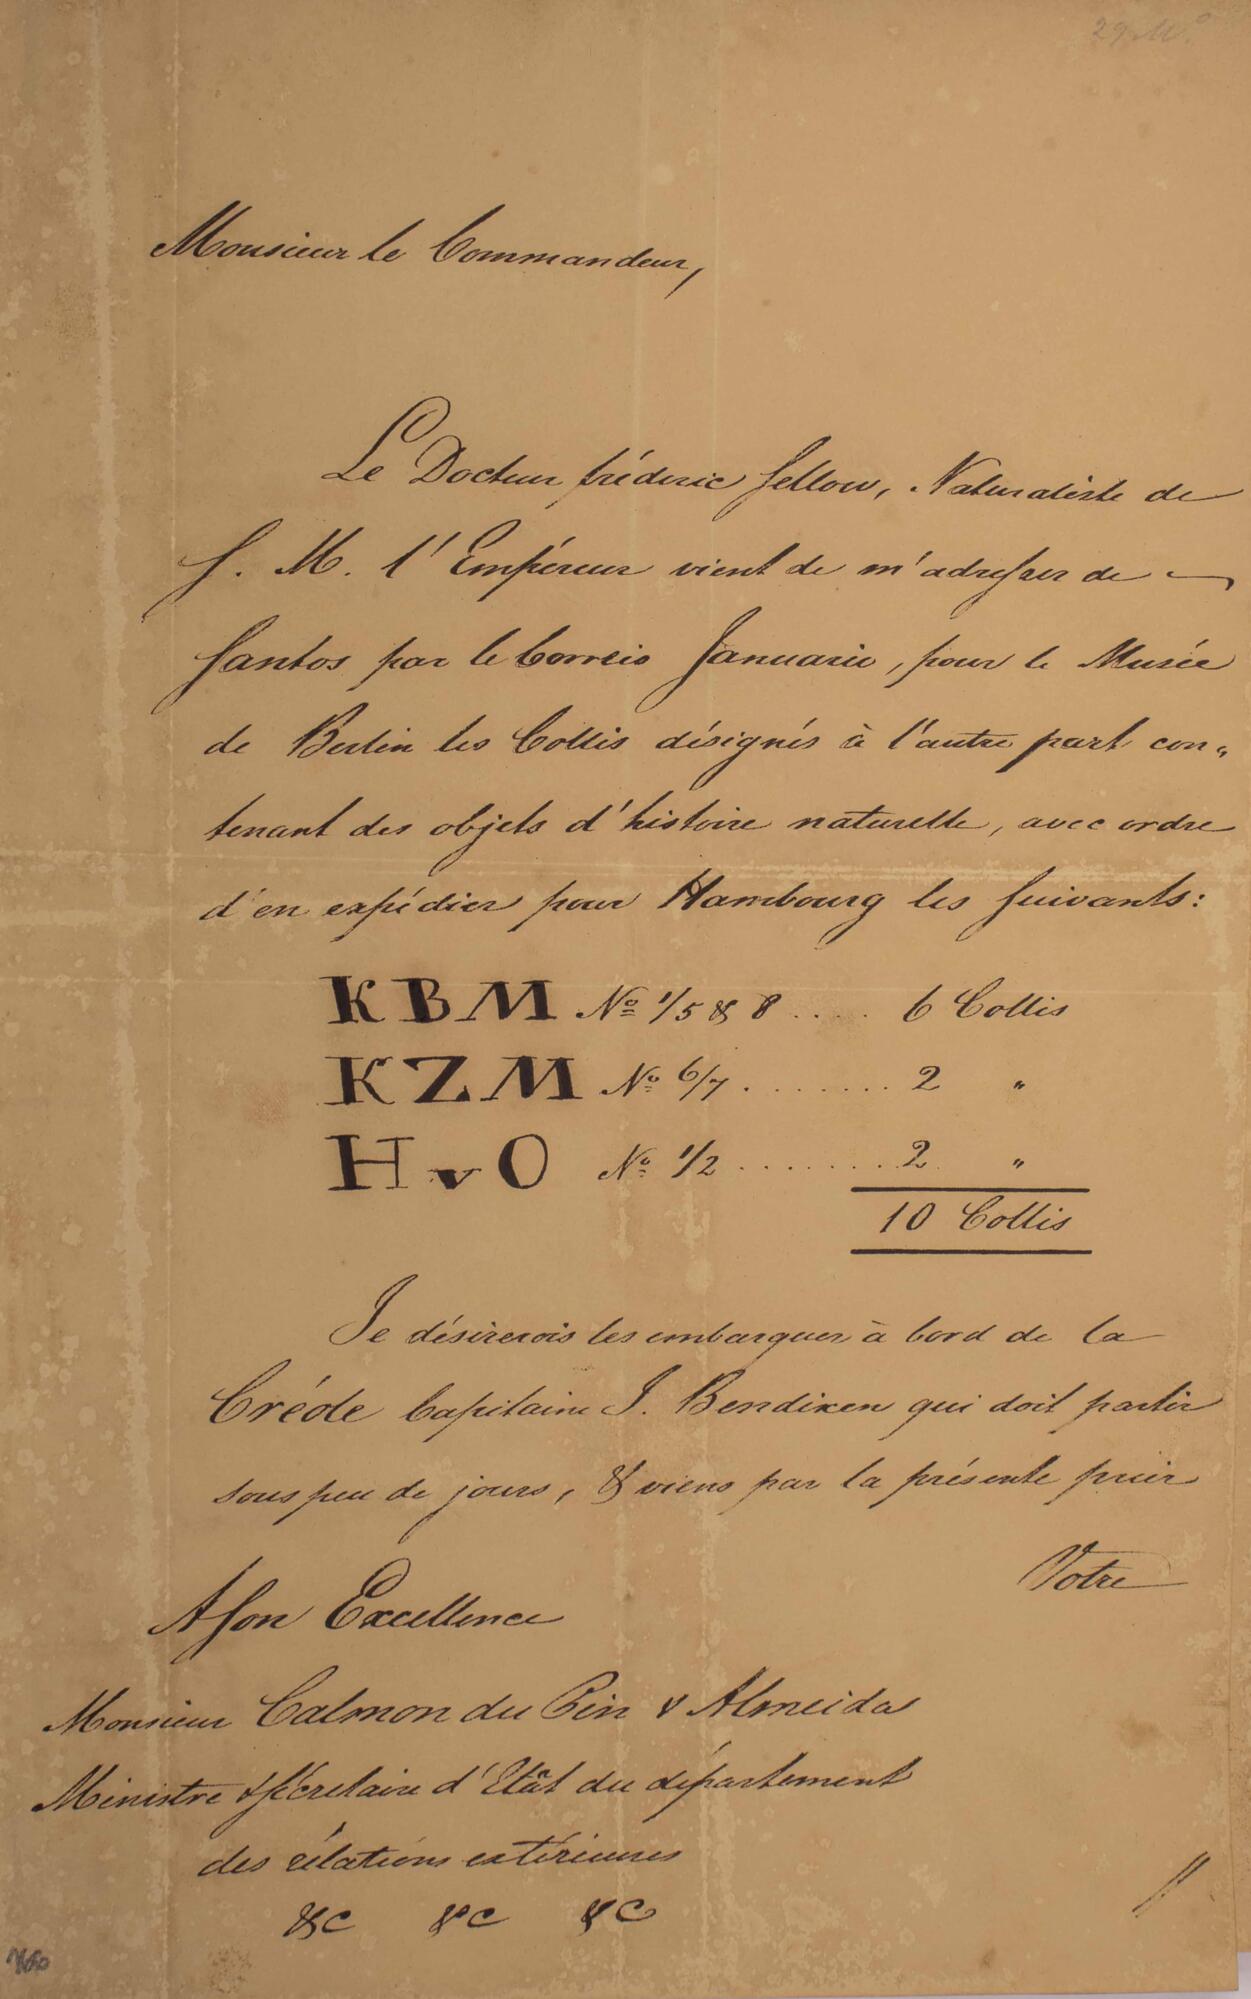 Monsieur le Commandeur,
Le Docteur fréderic Sellow, Naturaliste de
S. M. l'Empéreur vient de m'adresser de
Santos par le Correio Januario, pour le Musée
de Berlin les Collis désignés à l'autre part con-
tenant des objets d'histoire naturelle, avec ordre
d'en expédier pour Hambourg les suivants:
KBM No 1/5 & 8 .... 6 Collis
KZM No 6/7 ....... 2 "
HvO No 1/2 ....... 2 "
10 Collis
Je désirerois les embarquer à bord de la
Créole Capitaine J. Bendixen qui doit partir
sous peu de jours, & viens par la présente prier
Votre
A Son Excellence
Monsieur Calmon du Pin & Almeida
Ministre & Sécretaire d'Etât du département
des rélations extérieures
&c &c &c